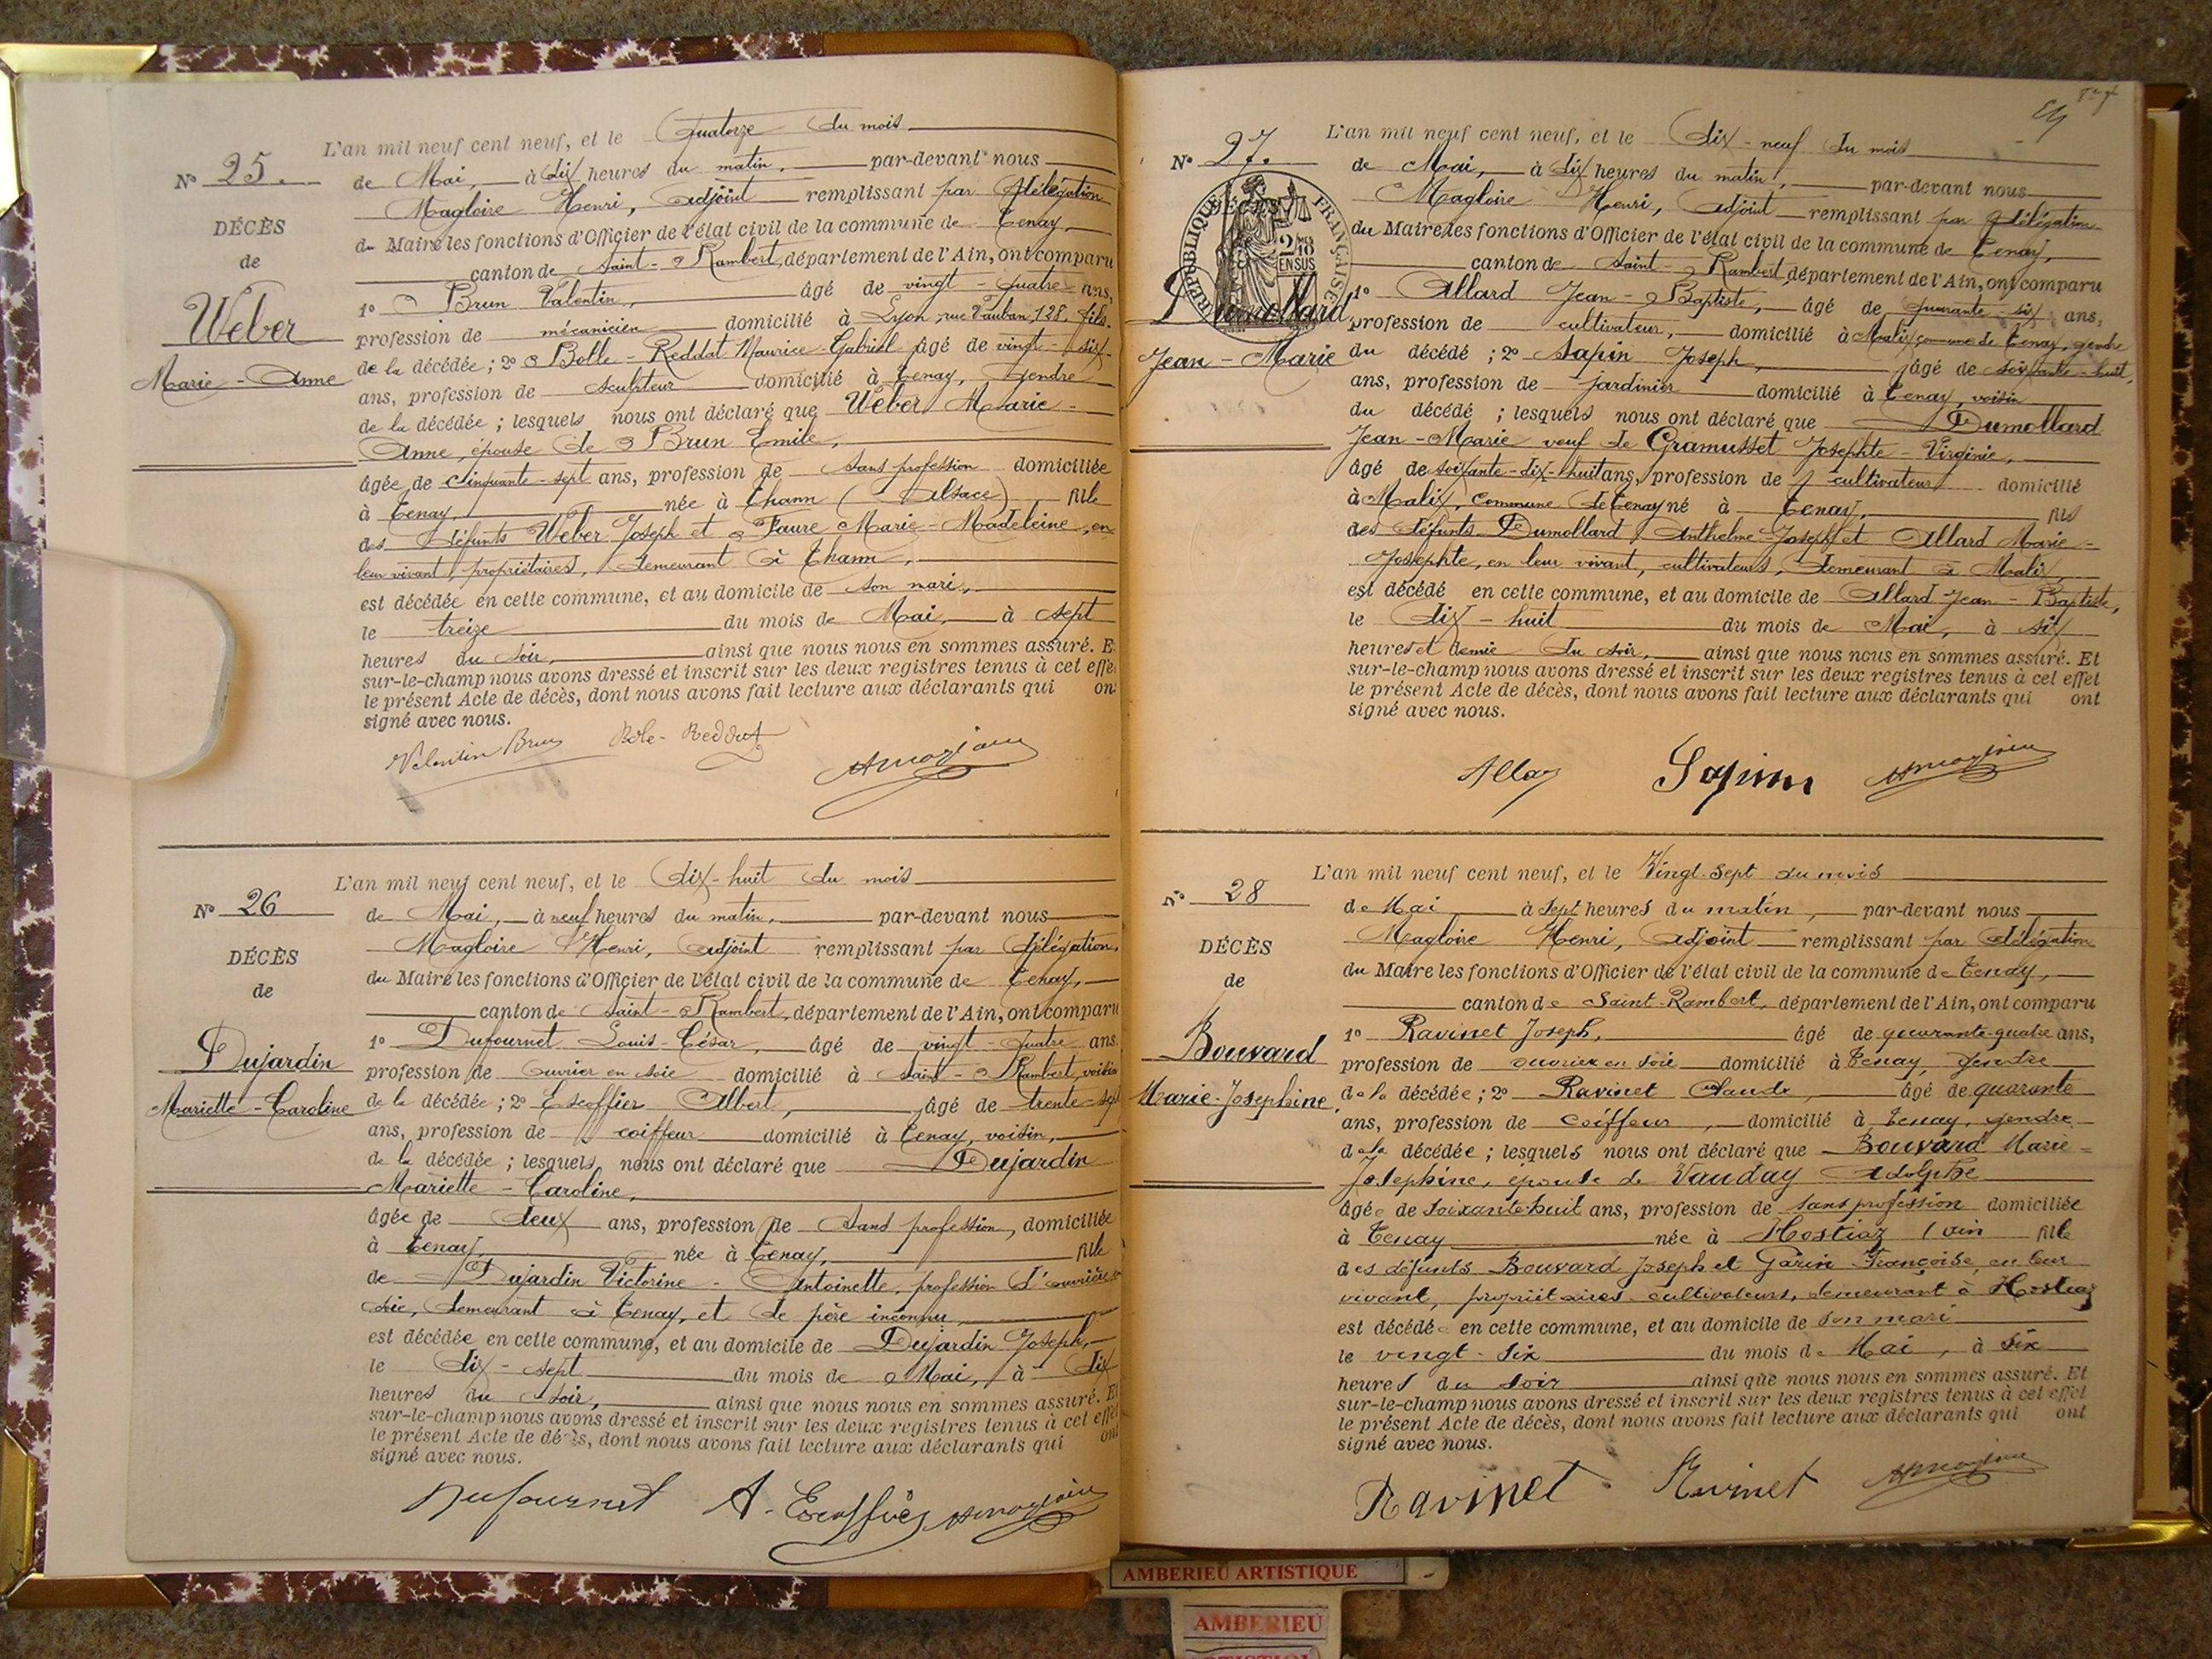 L'an mil neuf cent neuf, et le Quatorze du mois
N° 25. de Mai, à dix heures du matin, par-devant nous
Magloire Henri, adjoint remplissant par délégation
DÉCÈS
du Maire les fonctions d'Officier de l'état civil de la commune de Tenay,
de
canton de Saint-Rambert, département de l'Ain, ont comparu
1° Brun Valentin, âgé de vingt-quatre ans,
Weber
profession de mécanicien domicilié à Lyon, rue Vauban, 128, fils
de la décédée; 2° Bolle-Reddat Maurice-Gabriel âgé de vingt-six
Marie-Anne
ans, profession de sculpteur domicilié à Tenay, gendre
de la décédée; lesquels nous ont déclaré que Weber Marie-
Anne, épouse de Brun Emile,
âgée de cinquante-sept ans, profession de sans profession domiciliée
à Tenay, née à Thann (Alsace) fille
des défunts Weber Joseph et Faure Marie-Madeleine, en
leur vivant, propriétaires, demeurant à Thann,
est décédée en cette commune, et au domicile de son mari,
le treize du mois de Mai, à sept
heures du soir, ainsi que nous nous en sommes assuré. E
sur-le-champ nous avons dressé et inscrit sur les deux registres tenus à cet effe
le présent Acte de décès, dont nous avons fait lecture aux déclarants qui on
signé avec nous.
Valentin Brun Bole-Reddat
L'an mil neuf cent neuf, et le dix-huit du mois
N° 26 de Mai, à neuf heures du matin, par-devant nous
Magloire Henri, adjoint remplissant par délégation,
DÉCÈS
du Maire les fonctions d'Officier de l'état civil de la commune de Tenay,
de
canton de Saint-Rambert, département de l'Ain, ont comparu
1° Dufournet Louis-César, âgé de vingt-quatre ans
Dujardin
profession de ouvrier en soie domicilié à Saint-Rambert, voisin
Mariette-Caroline
de la décédée; 2° Escoffier Albert, âgé de trente-sept
ans, profession de coiffeur domicilié à Tenay, voisin,
de la décédée; lesquels nous ont déclaré que Dujardin
Mariette-Caroline,
âgée de deux ans, profession de sans profession, domiciliée
à Tenay, née à Tenay, fille
de Dujardin Victorine-Antoinette, profession d'ouvrière
soie, demeurant à Tenay, et de père inconnu,
est décédée en cette commune, et au domicile de Dujardin Joseph,
le dix-sept du mois de Mai, à dix
heures du soir, ainsi que nous nous en sommes assuré. Et
sur-le-champ nous avons dressé et inscrit sur les deux registres tenus à cet effet
le présent Acte de décès, dont nous avons fait lecture aux déclarants qui ont
signé avec nous.
Dufournet A. Escoffier
L'an mil neuf cent neuf, et le dix-neuf du mois
N° 27. de Mai, à dix heures du matin, par-devant nous
Magloire Henri, adjoint remplissant par délégation
RÉPUBLIQUE FRANÇAISE
du Maire les fonctions d'Officier de l'état civil de la commune de Tenay,
2/10 EN SUS
canton de Saint-Rambert, département de l'Ain, ont comparu
Dumollard
1° Allard Jean-Baptiste, âgé de quarante-six ans,
profession de cultivateur, domicilié à Malix, commune de Tenay, gendre
Jean-Marie
du décédé; 2° Sapin Joseph, âgé de soixante-huit,
ans, profession de jardinier domicilié à Tenay, voisin
du décédé; lesquels nous ont déclaré que Dumollard
Jean-Marie veuf de Gramusset Josephte-Virginie,
âgé de soixante-dix-huit ans, profession de cultivateur domicilié
à Malix, Commune de Tenay né à Tenay, fils
des défunts Dumollard Anthelme-Joseph et Allard Marie-
Josephte, en leur vivant, cultivateurs, demeurant à Malix,
est décédé en cette commune, et au domicile de Allard Jean-Baptiste,
le dix-huit du mois de Mai, à six
heures et demie du soir, ainsi que nous nous en sommes assuré. Et
sur-le-champ nous avons dressé et inscrit sur les deux registres tenus à cet effet
le présent Acte de décès, dont nous avons fait lecture aux déclarants qui ont
signé avec nous.
Sapin
L'an mil neuf cent neuf, et le Vingt-sept du mois
N° 28 de Mai à sept heures du matin, par-devant nous
Magloire Henri, adjoint remplissant par délégation
DÉCÈS
du Maire les fonctions d'Officier de l'état civil de la commune de Tenay,
de
canton de Saint-Rambert, département de l'Ain, ont comparu
1° Ravinet Joseph, âgé de quarante-quatre ans,
Bouvard
profession de ouvrier en soie domicilié à Tenay, gendre
Marie-Josephine
de la décédée; 2° Ravinet Claude, âgé de quarante
ans, profession de coiffeur, domicilié à Tenay, gendre
de la décédée; lesquels nous ont déclaré que Bouvard Marie-
Josephine, épouse de Vauday Adolphe
âgée de soixante huit ans, profession de sans profession domiciliée
à Tenay née à Hostiaz (Ain fille
des défunts Bouvard Joseph et Garin Françoise, en leur
vivant, propriétaires-cultivateurs, demeurant à Hostiaz
est décédée en cette commune, et au domicile de son mari
le vingt-six du mois de Mai, à six
heures du soir ainsi que nous nous en sommes assuré. Et
sur-le-champ nous avons dressé et inscrit sur les deux registres tenus à cet effet
le présent Acte de décès, dont nous avons fait lecture aux déclarants qui ont
signé avec nous.
Ravinet Ravinet
AMBERIEU ARTISTIQUE
AMBERIEU